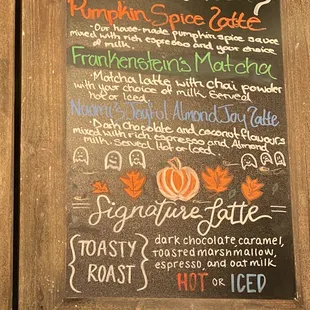 Pumpkin Spice Latte
• Our house-made pumpkin spice sauce
mixed with rich espresso and your choice
of milk.
Frankenstein's Matcha
• Matcha latte with chai powder
with your choice of milk. Served
hot or iced
Naomi's Joyful Almond Joy Latte
• Dark chocolate and coconut flavours
mixed with rich espresso and Almond
milk. Served Hot or Iced
Signature Latte
TOASTY
ROAST
dark chocolate, caramel,
toasted marshmallow,
espresso, and oatmilk
HOT OR ICED